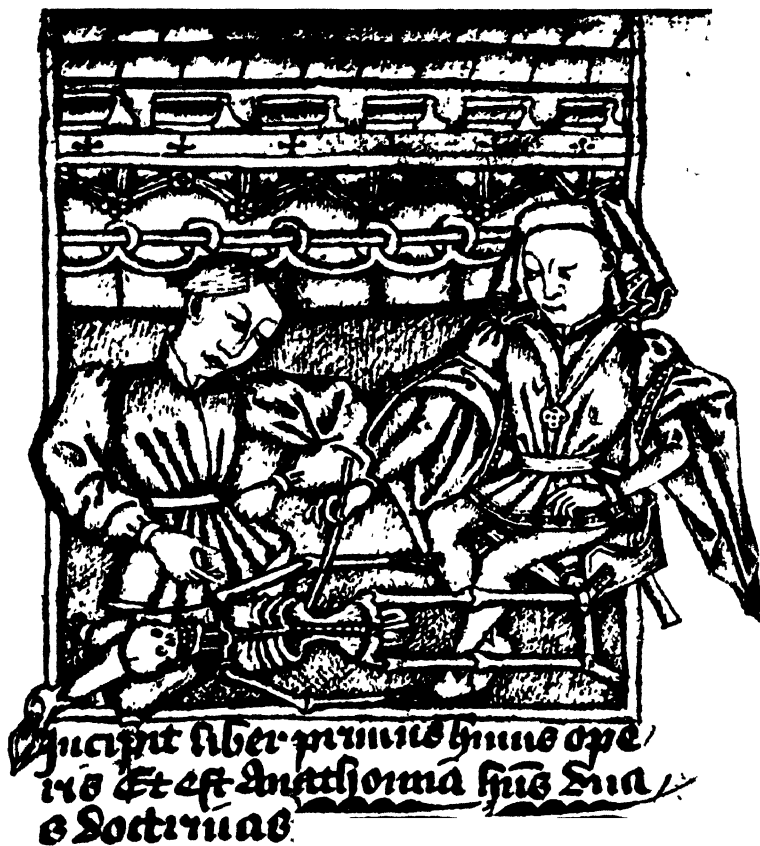 Incipit liber primus huius ope
ris Et est Anathomia hns dua
s doctrinas.